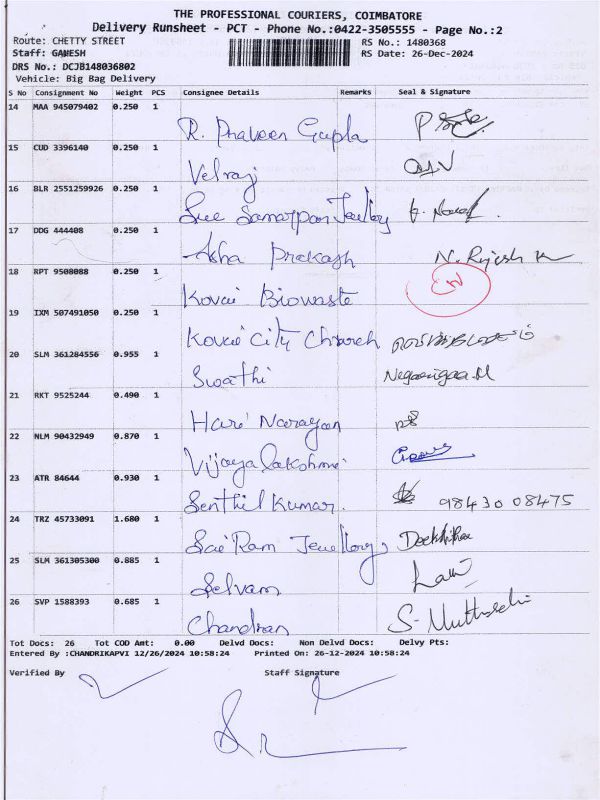 THE PROFESSIONAL COURIERS, COIMBATORE
Delivery Runsheet - PCT - Phone No.:0422-3505555 - Page No.:2
Route: CHETTY STREET RS No.: 1480368
Staff: GANESH RS Date: 26-Dec-2024
DRS No.: DCJB148036802
Vehicle: Big Bag Delivery
S No Consignment No Weight PCS Consignee Details Remarks Seal & Signature
14 MAA 945079402 0.250 1
R. Praveen Gupta
15 CUD 3396140 0.250 1
Velraj
16 BLR 2551259926 0.250 1
Sree Samarpan Jewllery
17 DDG 444408 0.250 1
Asha Prakash N. Rijesh
18 RPT 9508088 0.250 1
Kovai Biowaste
19 IXM 507491050 0.250 1
Kovai City Chruch
20 SLM 361284556 0.955 1
Swathi
21 RKT 9525244 0.490 1
Hari Narayan
22 NLM 90432949 0.870 1
Vijayalakshmi
23 ATR 84644 0.930 1
Senthil Kumar. 98430 08475
24 TRZ 45733091 1.680 1
Sai Ram Jewllery
25 SLM 361305300 0.885 1
Selvam
26 SVP 1588393 0.685 1
Chandran
Tot Docs: 26 Tot COD Amt: 0.00 Delvd Docs: Non Delvd Docs: Delvy Pts:
Entered By :CHANDRIKAPVI 12/26/2024 10:58:24 Printed On: 26-12-2024 10:58:24
Verified By Staff Signature